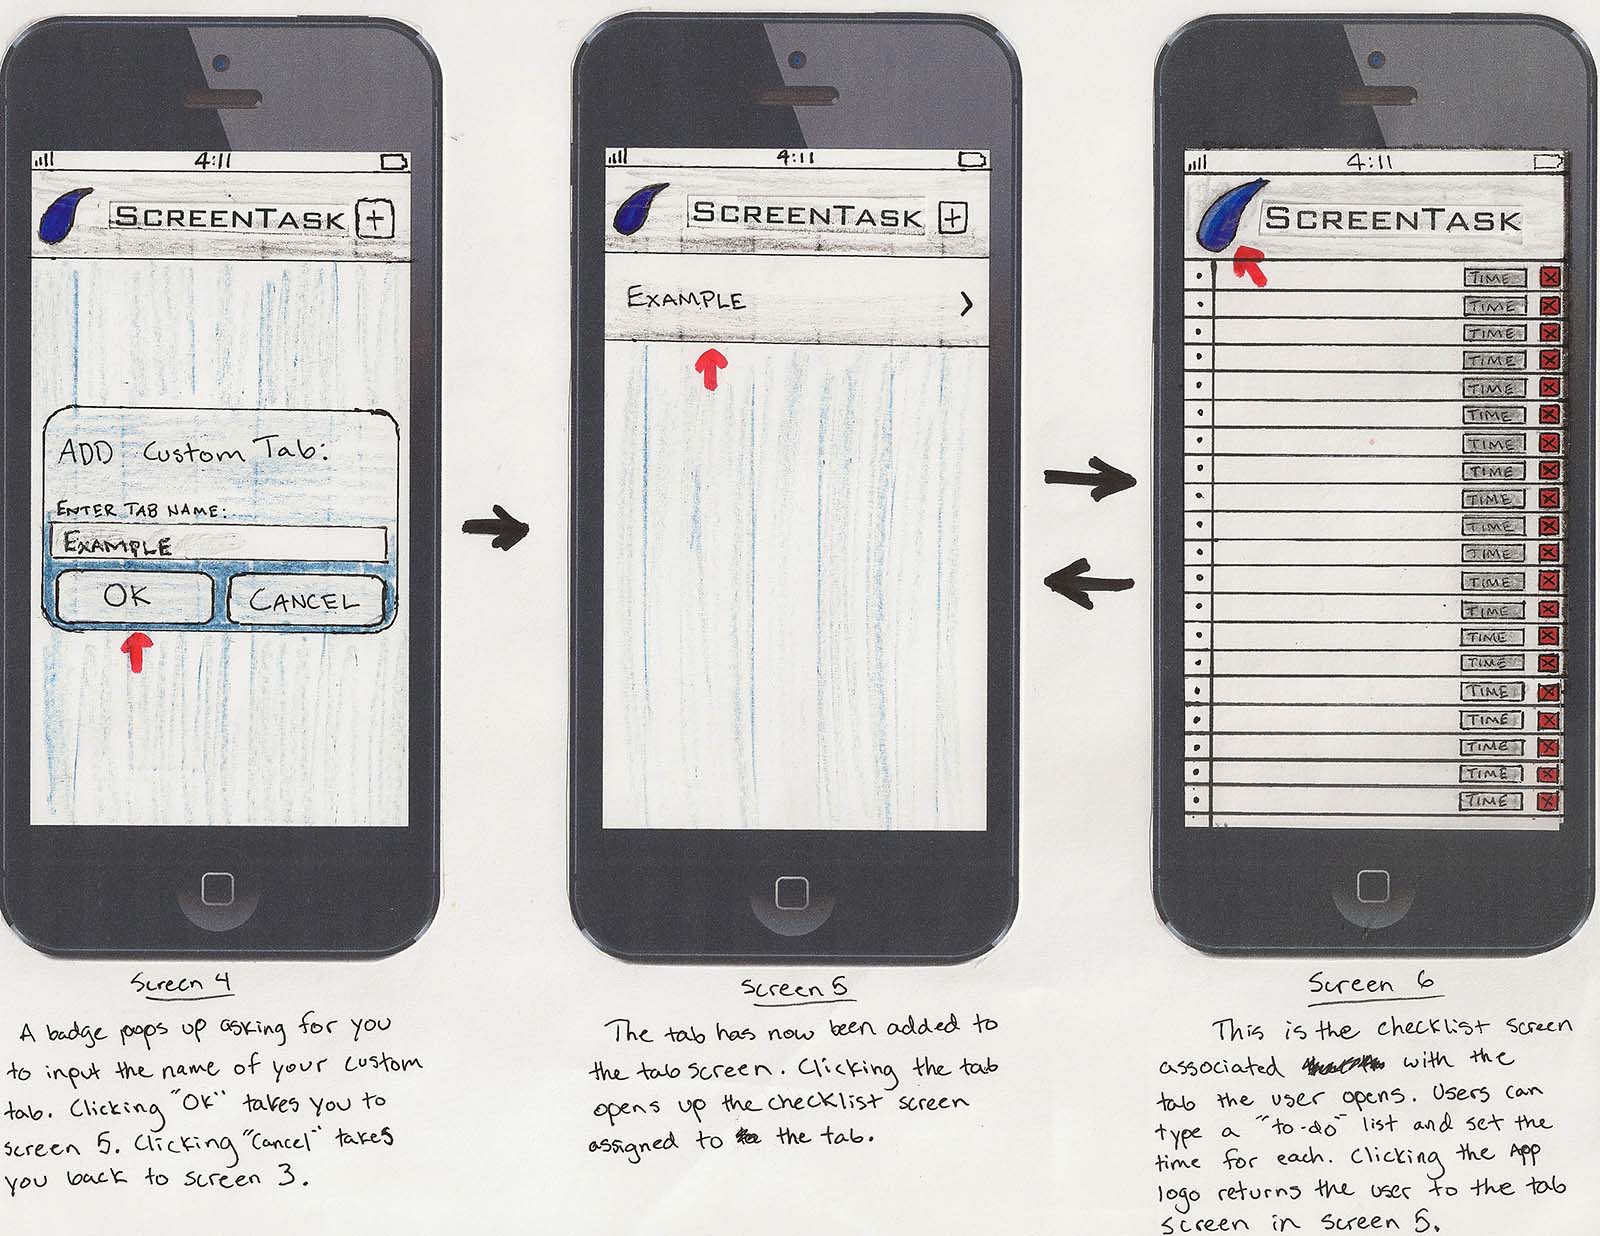 4:11
SCREENTASK +
ADD Custom Tab:
ENTER TAB NAME:
EXAMPLE
OK
CANCEL
Screen 4
A badge pops up asking for you
to input the name of your custom
tab. Clicking "OK" takes you to
screen 5. Clicking "Cancel" takes
you back to screen 3.
4:11
SCREENTASK +
EXAMPLE >
Screen 5
The tab has now been added to
the tab screen. Clicking the tab
opens up the checklist screen
assigned to the tab.
4:11
SCREENTASK
TIME X
TIME X
TIME X
TIME X
TIME X
TIME X
TIME X
TIME X
TIME X
TIME X
TIME X
TIME X
TIME X
TIME X
TIME X
TIME X
TIME X
TIME X
TIME X
TIME X
Screen 6
This is the checklist screen
associated with the
tab the user opens. Users can
type a "to-do" list and set the
time for each. Clicking the App
logo returns the user to the tab
screen in screen 5.